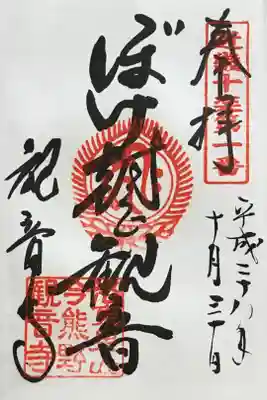 奉拝
平成二十八年
十月三十日
ぼけ封じ観音
観音寺
今熊野
観音寺